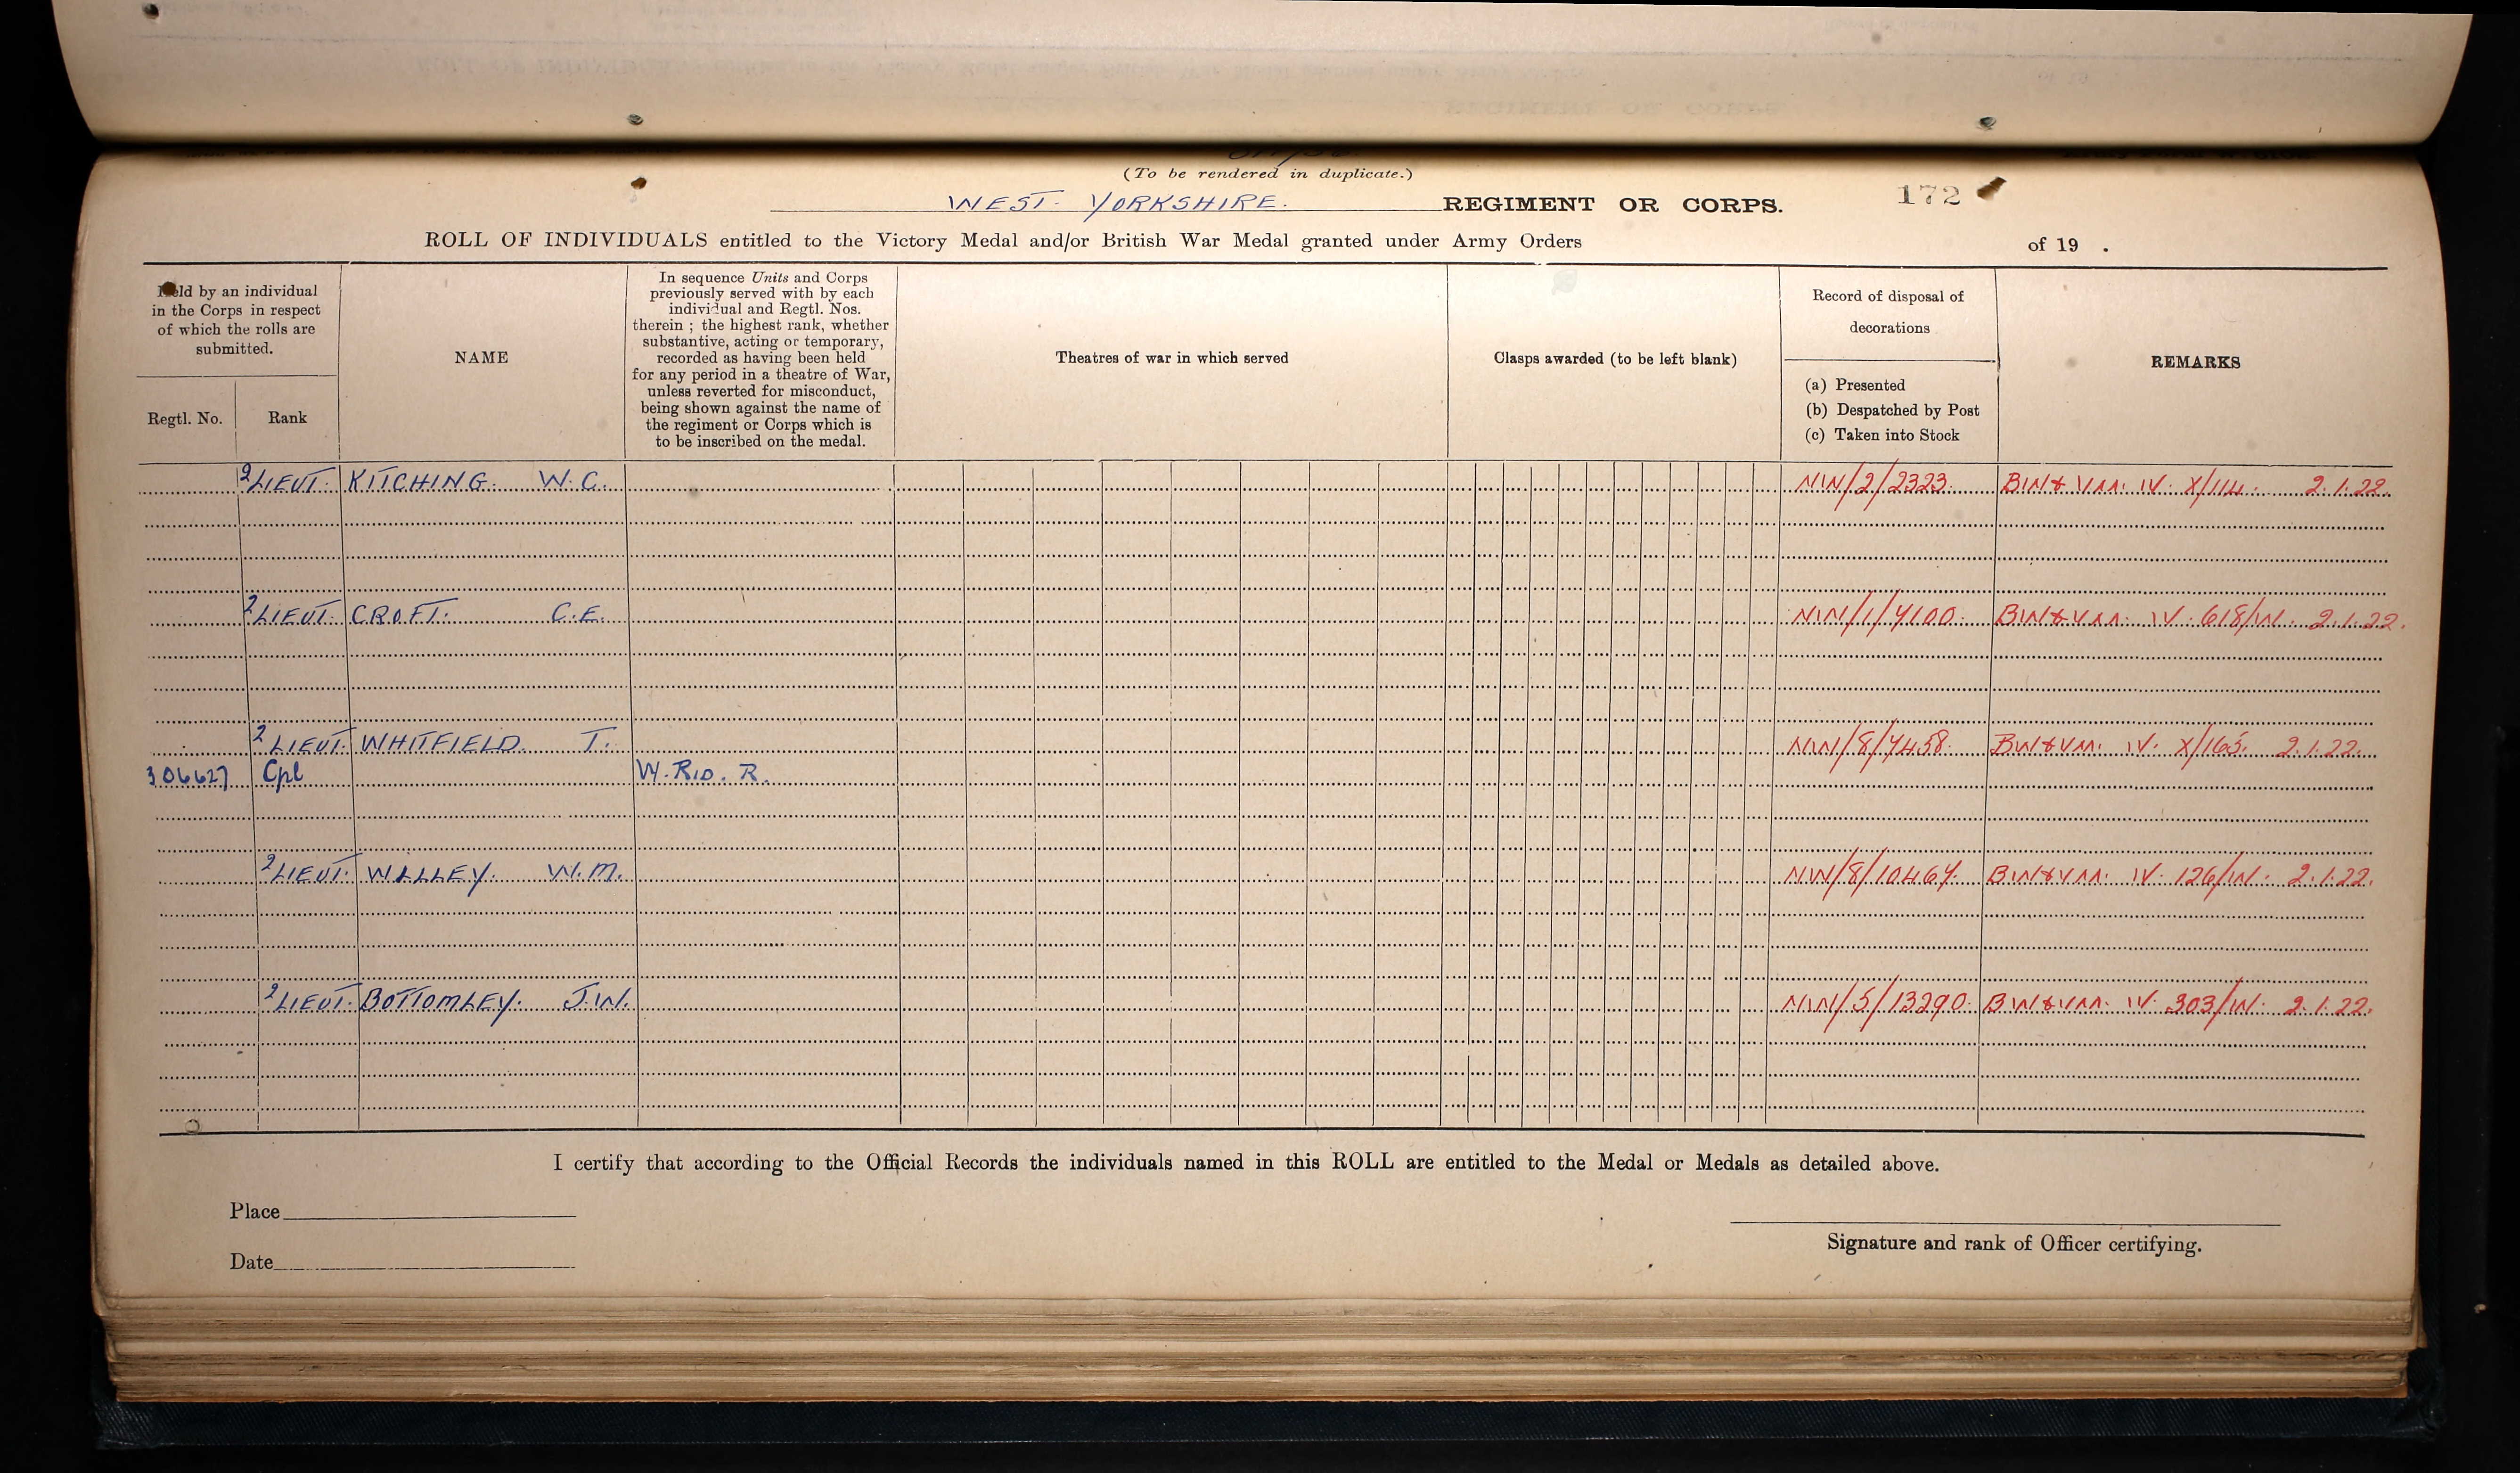 (To be rendered in duplicate.)
WEST YORKSHIRE. REGIMENT OR CORPS. 172
ROLL OF INDIVIDUALS entitled to the Victory Medal and/or British War Medal granted under Army Orders of 19 .
Held by an individual
in the Corps in respect
of which the rolls are
submitted.
Regtl. No.
Rank
NAME
In sequence Units and Corps
previously served with by each
individual and Regtl. Nos.
therein ; the highest rank, whether
substantive, acting or temporary,
recorded as having been held
for any period in a theatre of War,
unless reverted for misconduct,
being shown against the name of
the regiment or Corps which is
to be inscribed on the medal.
Theatres of war in which served
Clasps awarded (to be left blank)
Record of disposal of
decorations
(a) Presented
(b) Despatched by Post
(c) Taken into Stock
REMARKS
2 LIEUT. KITCHING. W.C. NW/2/2323. BW&VM. IV. X/114. 2.1.22.
2 LIEUT. CROFT. C.E. NW/1/4100. BW&VM. IV. 618/W. 2.1.22.
2 LIEUT. WHITFIELD. T. NW/8/7458. BW&VM. IV. X/165. 2.1.22.
306627 Cpl W. RID. R.
2 LIEUT. WILLEY. W.M. NW/8/10464. BW&VM. IV. 126/W. 2.1.22.
2 LIEUT. BOTTOMLEY. J.W. NW/5/13290. BW&VM. IV. 303/W. 2.1.22.
I certify that according to the Official Records the individuals named in this ROLL are entitled to the Medal or Medals as detailed above.
Place
Date
Signature and rank of Officer certifying.